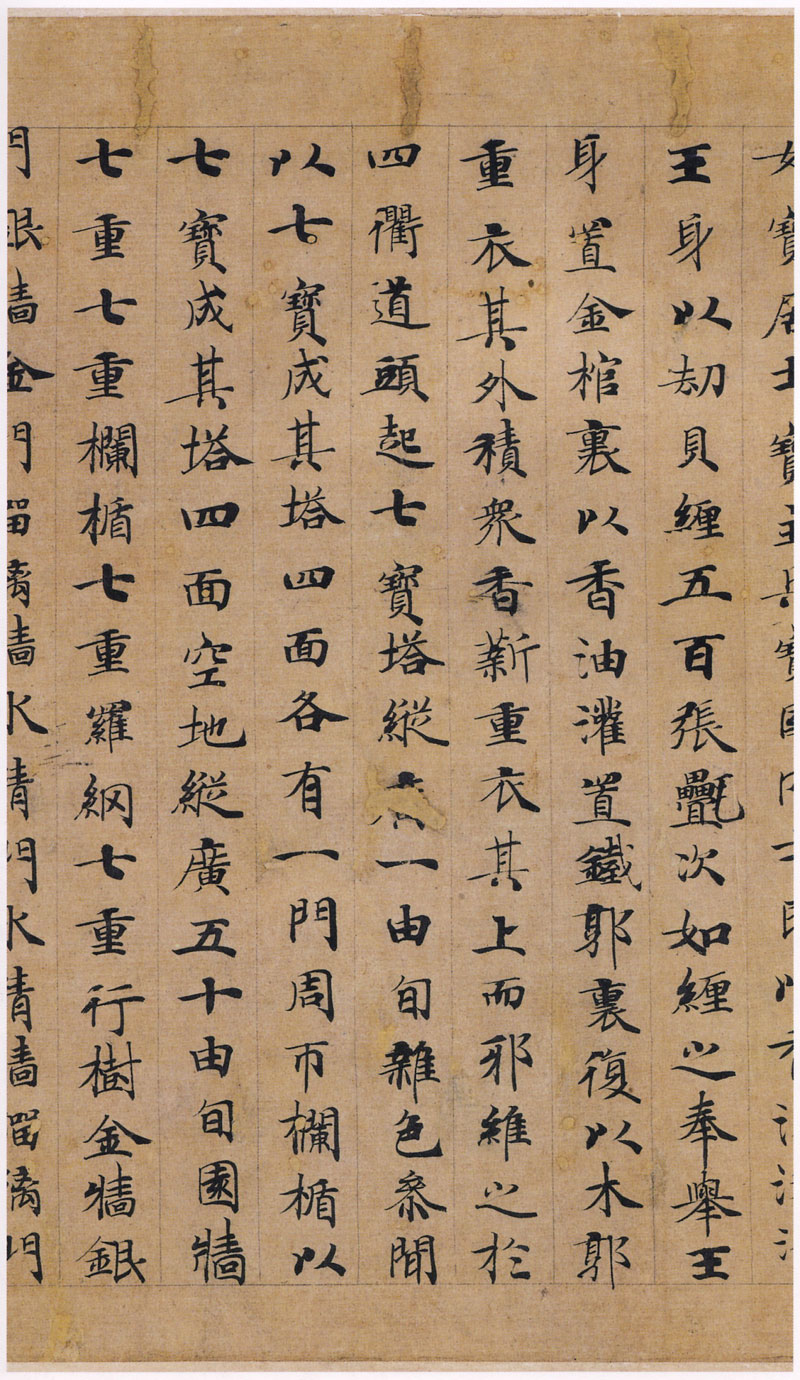 女寶居士寶主兵寶國内士民以香
王身以劫貝纏五百張氎次如纏之奉舉王
身置金棺裏以香油灌置鐵郭裏復以木郭
重衣其外積衆香薪重衣其上而邪維之於
四衢道頭起七寶塔縱廣一由旬雜色叅間
以七寶成其塔四面各有一門周帀欄楯以
七寶成其塔四面空地縱廣五十由旬園牆
七重七重欄楯七重羅網七重行樹金牆銀
門銀牆金門瑠璃牆水清門水清牆瑠璃門